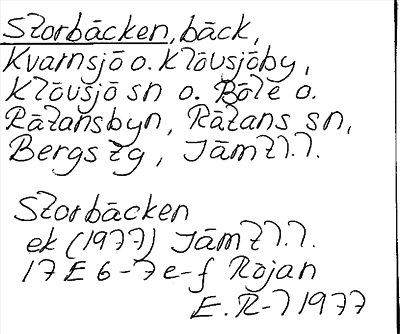 Storbäcken, bäck,
Kvarnsjö o. Klövsjöby,
Klövsjö sn o. Böle o.
Rätansbyn, Rätans sn,
Bergs tg, Jämtl.l.
Storbäcken
ek (1977) Jämtl.l.
17E 6-7e-f Röjan
E.R-l 1977